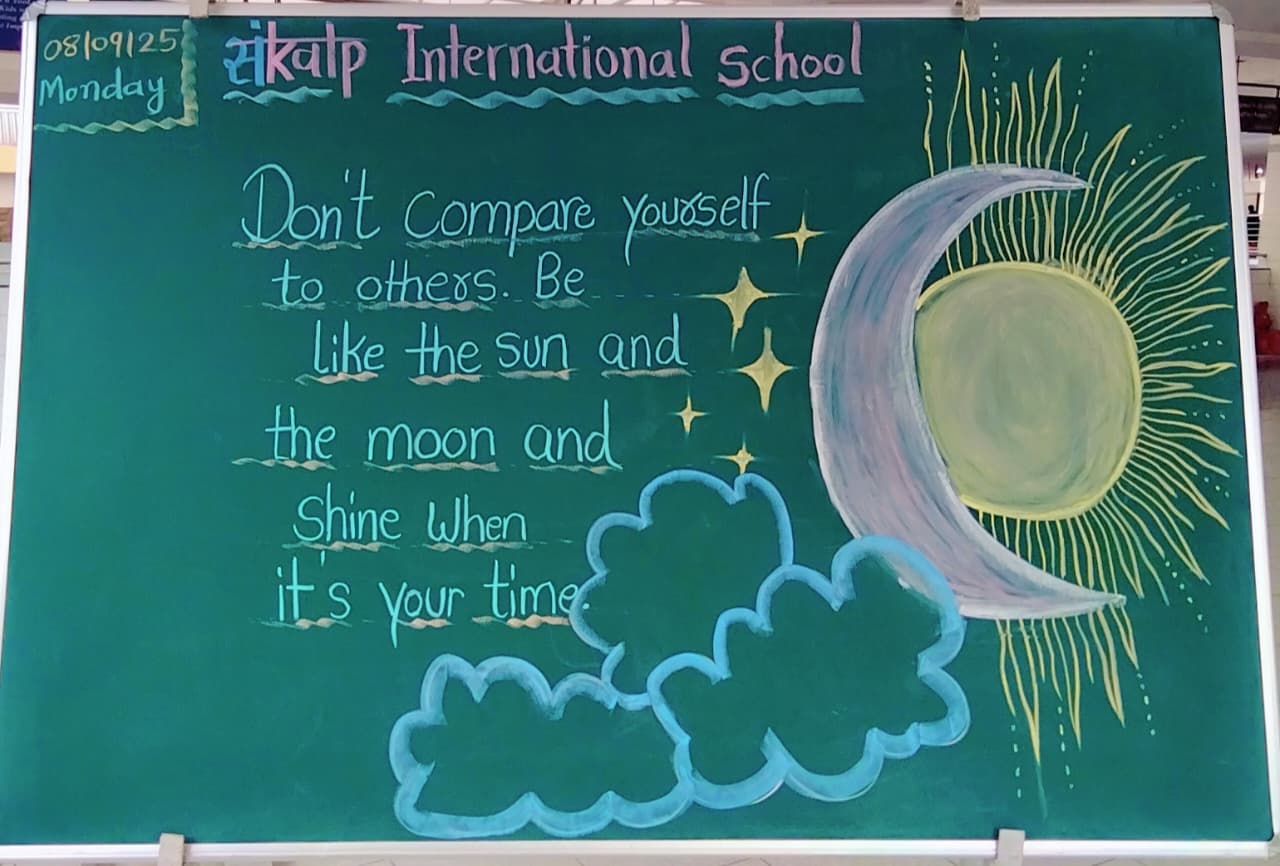 08/09/25
Monday
संkalp International School
Don't Compare yourself
to others. Be
like the sun and
the moon and
Shine When
it's your time.